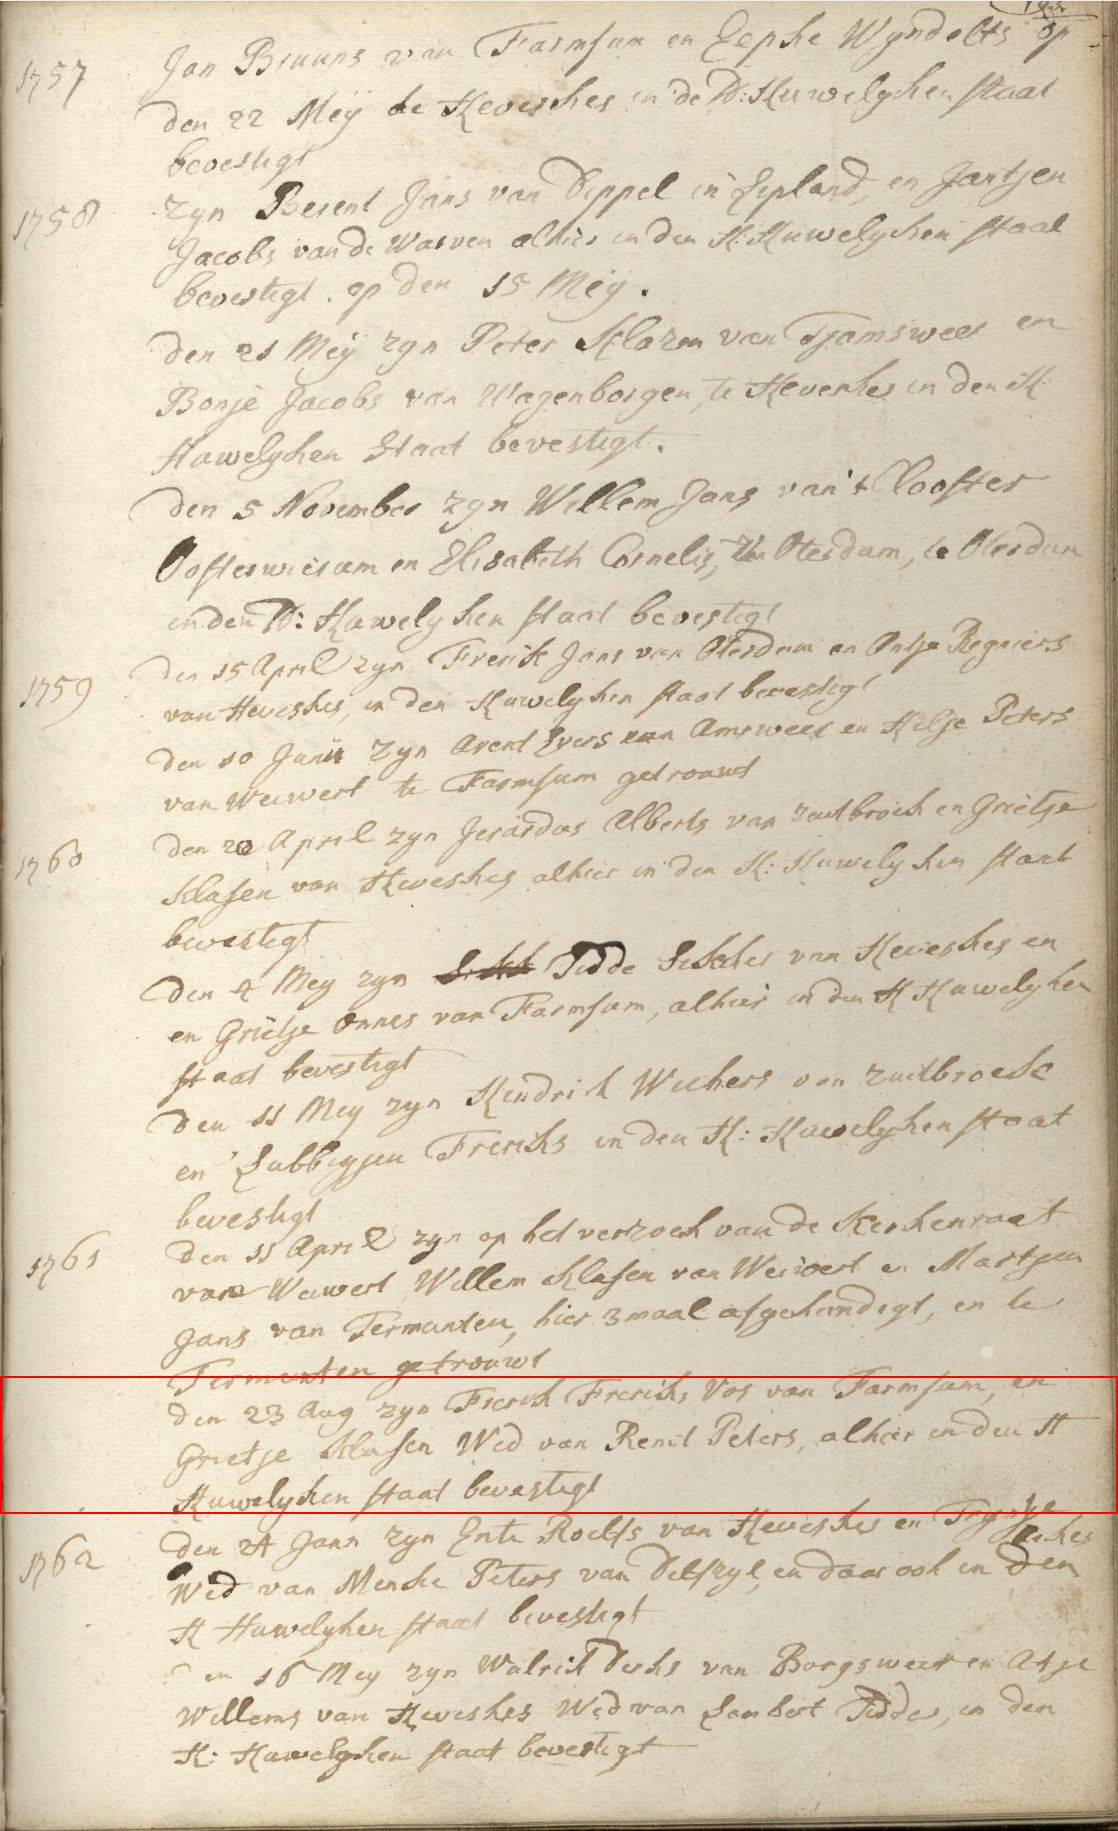 1757 Jan Bruuns van Farmsum en Eepke Wyndelts op
den 22 Meÿ te Heveskes in de H: Huwelyken staat
bevestigt
1758 zyn Berent Jans van Dippel in Lipland, en Jantjen
Jacobs van de Warven alhier in den H: Huwelyken staat
bevestigt. op den 15 Meÿ.
den 21 Meÿ zyn Peter Klazen van Tjamsweer en
Bonje Jacobs van Wagenborgen, te Heveskes in den H.
Huwelyken Staat bevestigt.
den 5 November zyn Willem Jans van't Clooster
Oosterwierum en Elisabeth Cornelis, van Oterdum, te Oterdum
in den H: Huwelyken staat bevestigt
1759 den 15 April zyn Frerik Jans van Oterdum en Antje Regniers
van Heveskes, in den Huwelyken staat bevestigt
den 10 Junii zyn Arent Evers van Amsweer en Hilje Peters
van Weiwert te Farmsum getrouwt
1760 den 20 April zyn Jerardus Alberts van Zuitbroek en Grietje
Klasen van Heveskes alhier in den H: Huwelyken staat
bevestigt
den 4 Mey zyn Tidde Sikkes van Heveskes en
en Grietje Onnes van Farmsum, alhier in den H Huwelyken
staat bevestigt
den 11 Mey zyn Hendrik Wichers van Zuitbroek
en Lubbigjen Freriks in den H: Huwelyken staat
bevestigt
1761 den 11 April zyn op het verzoek van de Kerkenraat
van Weiwert Willem Klasen van Weiwert en Martjen
Jans van Termunten, hier 3 maal afgekondigt, en te
Termunten getrouwt
den 23 Aug zyn Frerik Freriks Vos van Farmsum, en
Grietje Klasen Wed van Remt Peters, alhier in den H
Huwelyken staat bevestigt
1762 den 24 Jann zyn Ente Roelfs van Heveskes en
Wed van Menke Peters van Delfzyl, en daar ook in den
H Huwelyken staat bevestigt
den 16 Mey zyn Walrik Derks van Borgsweer en Atje
Willems van Heveskes Wed van Lambert Tiddes, in den
H: Huwelyken staat bevestigt